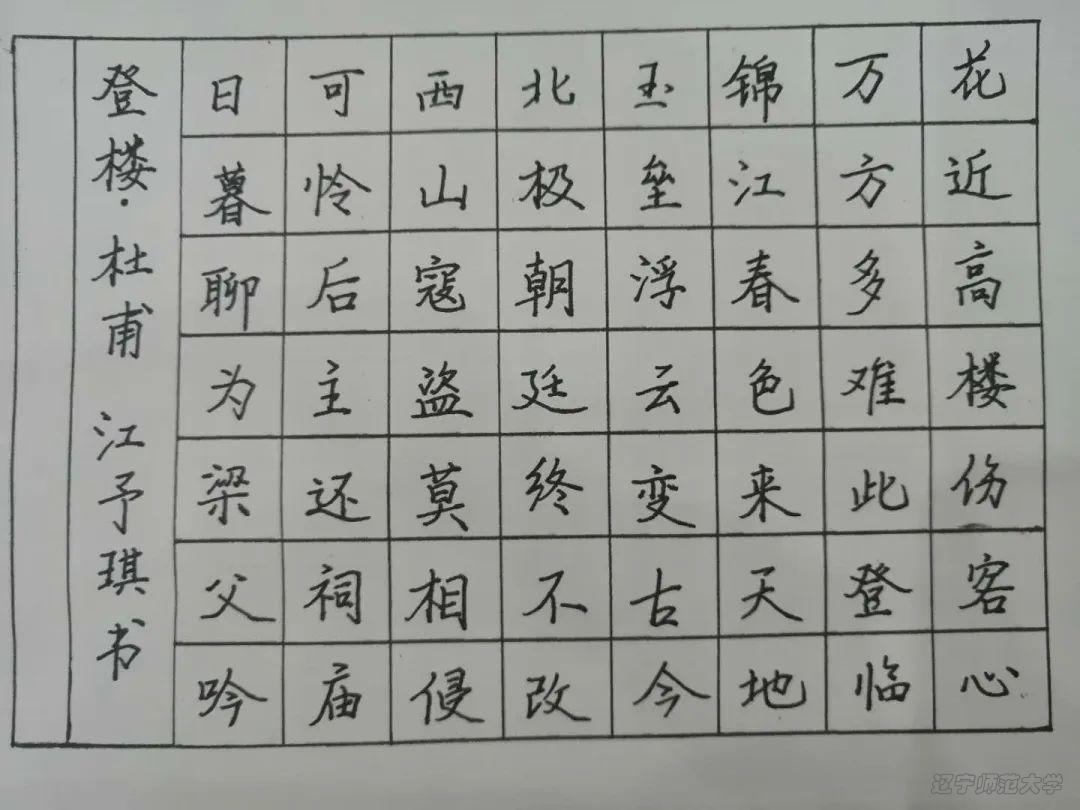 花近高楼伤客心
万方多难此登临
锦江春色来天地
玉垒浮云变古今
北极朝廷终不改
西山寇盗莫相侵
可怜后主还祠庙
日暮聊为梁父吟
登楼·杜甫 江予琪书
辽宁师范大学